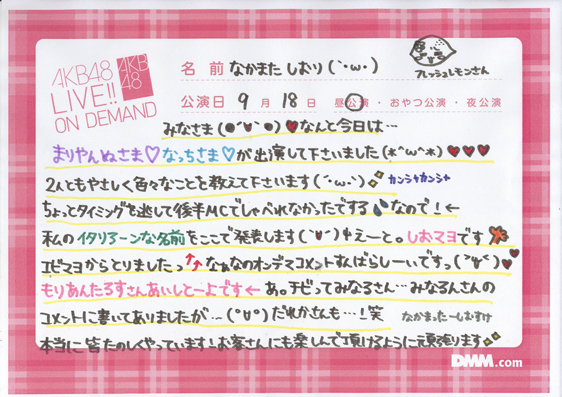 AKB48
LIVE!!
ON DEMAND
AKB
48
名前 なかまた しおり (`･ω･)
フレッシュレモンさん
公演日 9月18日 昼公演・おやつ公演・夜公演
みなさま(●'∀'●)♥なんと今日は…
まりやんぬさま♡なっちさま♡が出演して下さいました(*^ω^*)♥♥♥
2人ともやさしく色々なことを教えて下さいます(´･ω･`) カンシャカンシャ
ちょっとタイミングを逃して後半MCでしゃべれなかったでする なので!←
私のイタリアーンな名前をここで発表します(´∀`)ψえーと。しおマヨです
エビマヨからとりましたっ↑↑なぁなのオンデマコメントすんばらしーいですっ(°∀°)♥
もりあんたろすさんあいしとーよです← あ。チビってみなるさん…みなるんさんの
コメントに書いてありましたが…(°∀°)だれかさんも…!笑 なかまったーしおすけ
本当に皆たのしくやっています!お客さんにも楽しんで頂けるように頑張ります
DMM.com